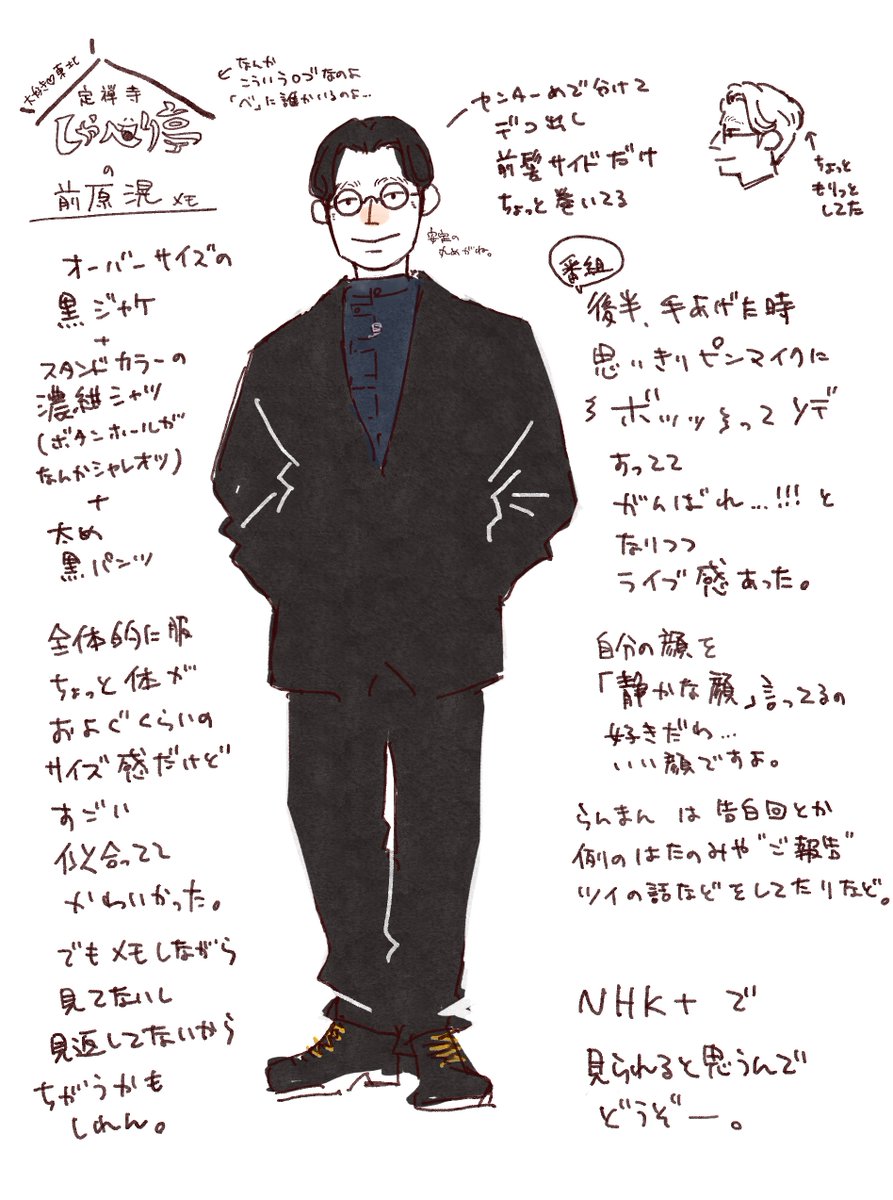 大好き♡東北
定禅寺
しゃべり亭
の
前原滉メモ
なんか
こういうロゴなのよ
「べ」に誰かいるのよ…
センターめで分けて
デコ出し
前髪サイドだけ
ちょっと巻いてる
ちょっと
もりっと
してた
安定の
丸めがね。
オーバーサイズの
黒ジャケ
+
スタンドカラーの
濃紺シャツ
(ボタンホールが
なんかシャレオツ)
+
太め
黒パンツ
全体的に服
ちょっと体が
およぐくらいの
サイズ感だけど
すごい
似合ってて
かわいかった。
でもメモしながら
見てないし
見返してないから
ちがうかも
しれん。
番組
後半、手あげた時
思いきりピンマイクに
ボッッってソデ
あってて
がんばれ…!!!と
なりつつ
ライブ感あった。
自分の顔を
「静かな顔」言ってるの
好きだわ…
いい顔ですよ。
らんまんは告白回とか
例のはたのみや"ご報告"
ツイの話などをしてたりなど。
NHK+で
見られると思うんで
どうぞー。